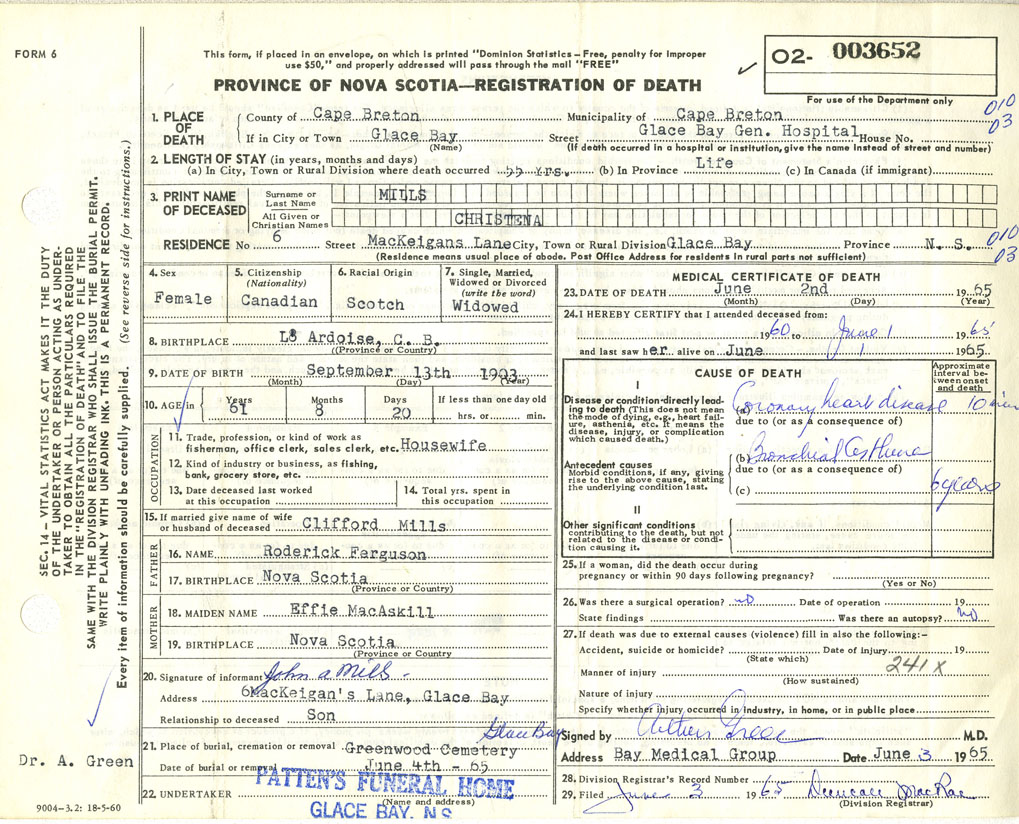 FORM 6
This form, if placed in an envelope, on which is printed "Dominion Statistics—Free, penalty for improper
use $50," and properly addressed will pass through the mail "FREE"
PROVINCE OF NOVA SCOTIA—REGISTRATION OF DEATH
02- 003652
For use of the Department only
010
03
1. PLACE OF DEATH
County of Cape Breton Municipality of Cape Breton
If in City or Town Glace Bay Street Glace Bay Gen. Hospital House No.
(Name) (If death occurred in a hospital or institution, give the name instead of street and number)
2. LENGTH OF STAY (in years, months and days)
(a) In City, Town or Rural Division where death occurred 55 yrs. (b) In Province Life (c) In Canada (if immigrant)
3. PRINT NAME OF DECEASED
Surname or Last Name MILLS
All Given or Christian Names CHRISTENA
RESIDENCE No 6 Street MacKeigans Lane City, Town or Rural Division Glace Bay Province N. S.
010
03
(Residence means usual place of abode. Post Office Address for residents in rural parts not sufficient)
4. Sex
Female
5. Citizenship
(Nationality)
Canadian
6. Racial Origin
Scotch
7. Single, Married,
Widowed or Divorced
(write the word)
Widowed
8. BIRTHPLACE L' Ardoise, C. B.
(Province or Country)
9. DATE OF BIRTH September 13th 1903
(Month) (Day) (Year)
10. AGE in Years 61 Months 8 Days 20 If less than one day old
hrs. or min.
OCCUPATION
11. Trade, profession, or kind of work as
fisherman, office clerk, sales clerk, etc. Housewife
12. Kind of industry or business, as fishing,
bank, grocery store, etc.
13. Date deceased last worked
at this occupation
14. Total yrs. spent in
this occupation
15. If married give name of wife
or husband of deceased Clifford Mills
FATHER
16. NAME Roderick Ferguson
17. BIRTHPLACE Nova Scotia
(Province or Country)
MOTHER
18. MAIDEN NAME Effie MacAskill
19. BIRTHPLACE Nova Scotia
(Province or Country
20. Signature of informant John A Mills
Address 6MacKeigan's Lane, Glace Bay
Relationship to deceased Son
Glace Bay
21. Place of burial, cremation or removal Greenwood Cemetery
Date of burial or removal June 4th - 65
22. UNDERTAKER PATTEN'S FUNERAL HOME
(Name and address)
GLACE BAY, N.S.
MEDICAL CERTIFICATE OF DEATH
23. DATE OF DEATH June 2nd 1965
(Month) (Day) (Year)
24. I HEREBY CERTIFY that I attended deceased from:
1960 June 1 1965
and last saw her alive on June 1 1965
CAUSE OF DEATH
Approximate
interval be-
tween onset
and death
I
Disease or condition directly lead-
ing to death (This does not mean
the mode of dying, e.g., heart failure,
asthenia, etc. It means the
disease, injury, or complication
which caused death.)
(a) Coronary heart disease 10 min
due to (or as a consequence of)
Antecedent causes
Morbid conditions, if any, giving
rise to the above cause, stating
the underlying condition last.
(b) Bronchial Asthma
due to (or as a consequence of)
(c) 6 years
II
Other significant conditions
contributing to the death, but not
related to the disease or condi-
tion causing it.
25. If a woman, did the death occur during
pregnancy or within 90 days following pregnancy?
(Yes or No)
26. Was there a surgical operation? no Date of operation 19
State findings Was there an autopsy? no
27. If death was due to external causes (violence) fill in also the following:-
Accident, suicide or homicide? Date of injury 19
(State which)
241X
Manner of injury
(How sustained)
Nature of injury
Specify whether injury occurred in Industry, in home, or in public place
Signed by Arthur Green M.D.
Address Bay Medical Group Date June 3 1965
28. Division Registrar's Record Number
29. Filed June 3 1965 Duncan MacRae
(Division Registrar)
SEC. 14 — VITAL STATISTICS ACT MAKES IT THE DUTY
OF THE UNDERTAKER OR PERSON ACTING AS UNDER-
TAKER TO OBTAIN ALL THE PARTICULARS REQUIRED
IN THE "REGISTRATION OF DEATH" AND TO FILE THE
SAME WITH THE DIVISION REGISTRAR WHO SHALL ISSUE THE BURIAL PERMIT.
WRITE PLAINLY WITH UNFADING INK. THIS IS A PERMANENT RECORD.
Every item of information should be carefully supplied. (See reverse side for instructions.)
Dr. A. Green
9004-3.2: 18-5-60